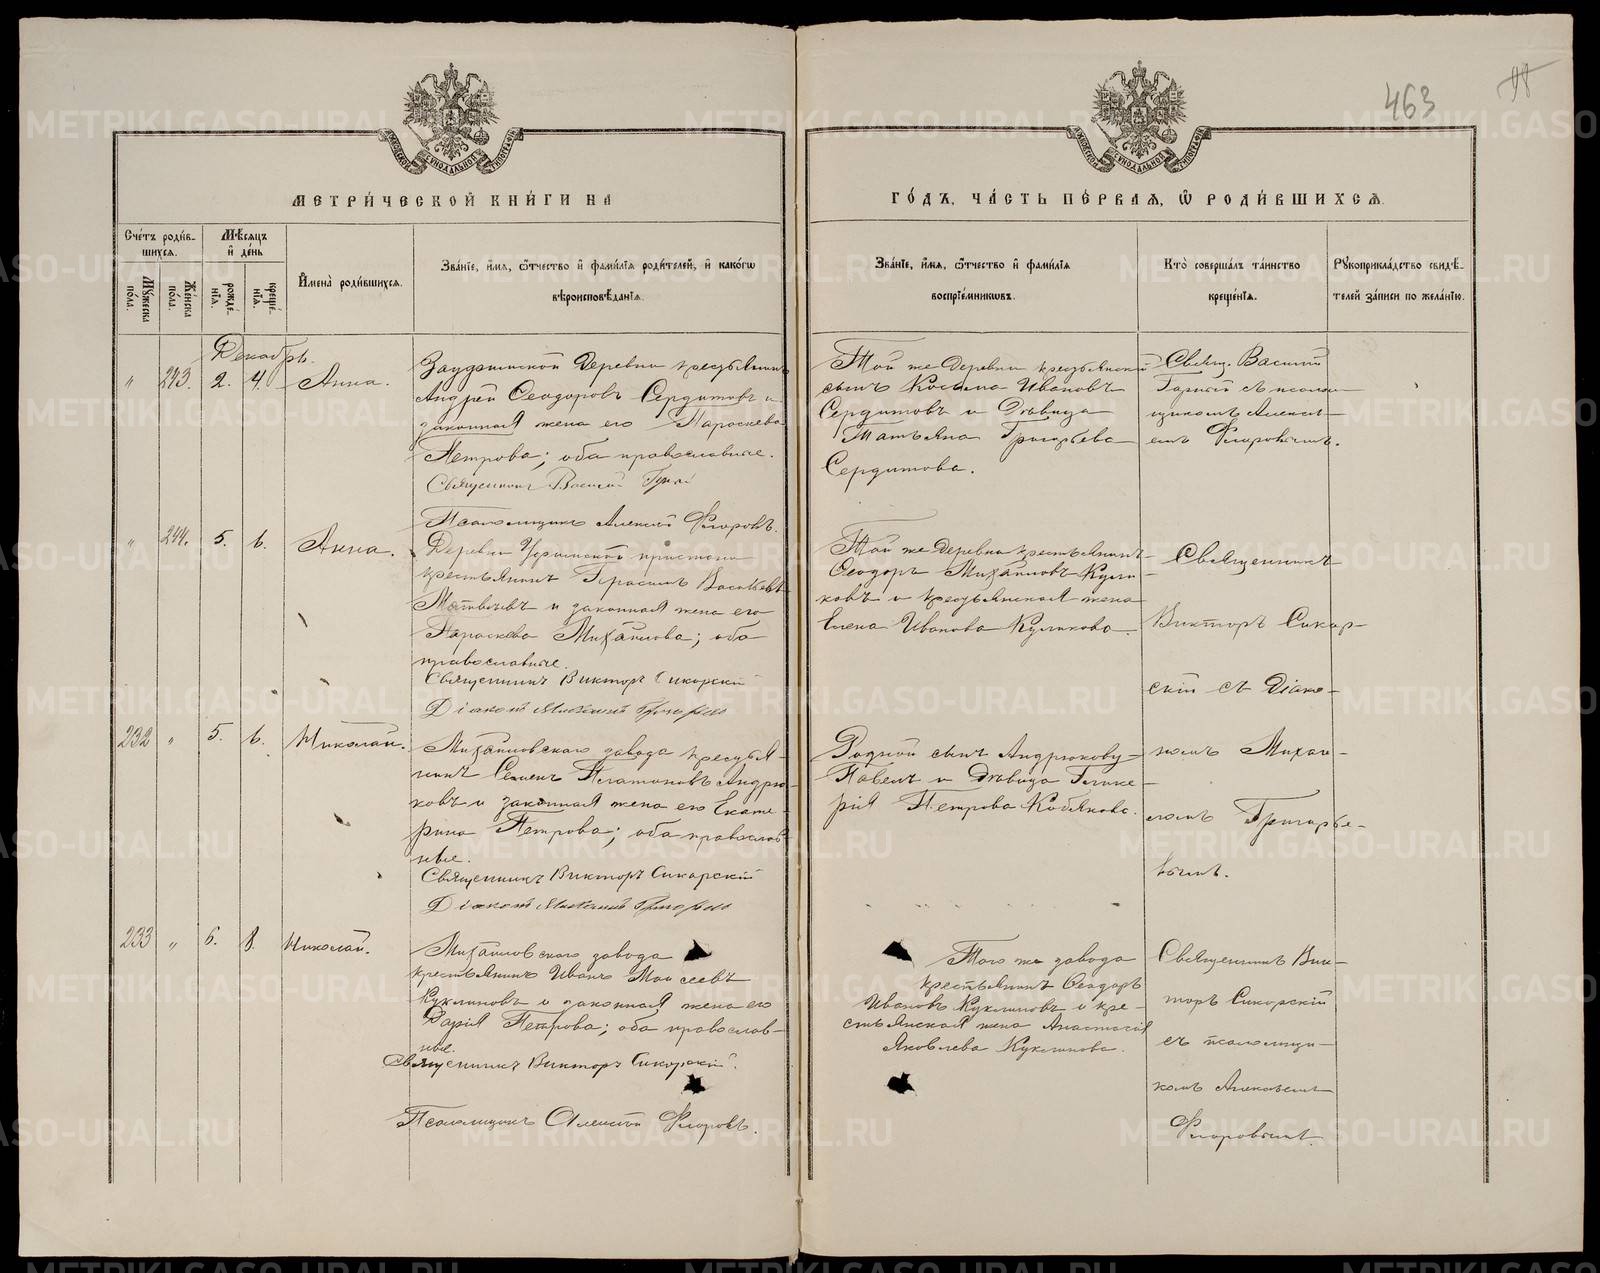 463
МОСКОВСКОЙ СѴНОДАЛЬНОЙ ТИПОГРАФІИ
МЕТРИ́ЧЕСКОЙ КНИ́ГИ НА
ГО́ДЪ, ЧА́СТЬ ПЕ́РВАѦ, Ѡ҆ РОДИ́ВШИХСѦ.
Сче́тъ роди́в-
шихсѧ.
Мѣ́сѧцъ
и҆ де́нь
Мꙋ́жеска по́ла.
Же́нска по́ла.
рожде́-нїѧ.
креще́-нїѧ.
И҆мена̀ роди́вшихсѧ.
Зва́нїе, и҆́мѧ, ѻ҆́тчество и҆ фами́лїѧ роди́телей, и҆ како́гѡ
вѣроисповѣ́данїѧ.
Зва́нїе, и҆́мѧ, ѻ҆́тчество и҆ фами́лїѧ
воспрїе́мникѡвъ.
Кто̀ соверша́лъ та́инство
креще́нїѧ.
Рꙋкоприкла́дство свидѣ́-
телей за́писи по жела́нїю.
Декабрь.
" 243. 2. 4. Анна.
деревни крестьянинъ
Андрей Ѳеодоровъ Сердитовъ и
законная жена его Параскева
Петрова; оба православные.
Священникъ Василій
Псаломщикъ Алексѣй Флоровъ.
Той же деревни крестьянскій
сынъ Косьма Ивановъ
Сердитовъ и дѣвица
Татьяна Григорьева
Сердитова.
Свящ. Василій
съ псалом-
щикомъ Алексѣ-
емъ Флоровымъ.
" 244. 5. 6. Анна.
Деревни Уфимской пристани
крестьянинъ Герасимъ Васильевъ
Матвѣевъ и законная жена его
Параскева Михайлова; оба
православные.
Священникъ Викторъ Сикорскій
Діаконъ Михаилъ Григорьевъ
Той же деревни крестьянинъ
Ѳеодоръ Михайловъ Кули-
ковъ и крестьянская жена
Елена Иванова Куликова.
Священникъ
Викторъ Сикор-
скій съ Діако-
номъ Михаи-
ломъ Григорье-
вымъ.
232 " 5. 6. Николай.
Михайловскаго завода крестья-
нинъ Семенъ Платоновъ Андрю-
ковъ и законная жена его Екате-
рина Петрова; оба православ-
ные.
Священникъ Викторъ Сикорскій
Діаконъ Михаилъ Григорьевъ
Родной сынъ Андрюкову
Павелъ и дѣвица Глике-
рія Петрова Кобякова.
233 " 6. 8. Николай.
Михайловскаго завода
крестьянинъ Иванъ Моисеевъ
Куклиновъ и законная жена его
Дарія Петрова; оба православ-
ные.
Священникъ Викторъ Сикорскій.
Псаломщикъ Алексѣй Флоровъ.
Того же завода
крестьянинъ Ѳеодоръ
Ивановъ Куклиновъ и кре-
стьянская жена Анастасія
Яковлева Куклинова.
Священникъ Вик-
торъ Сикорскій
съ псаломщи-
комъ Алексѣемъ
Флоровымъ.
METRIKI.GASO-URAL.RU